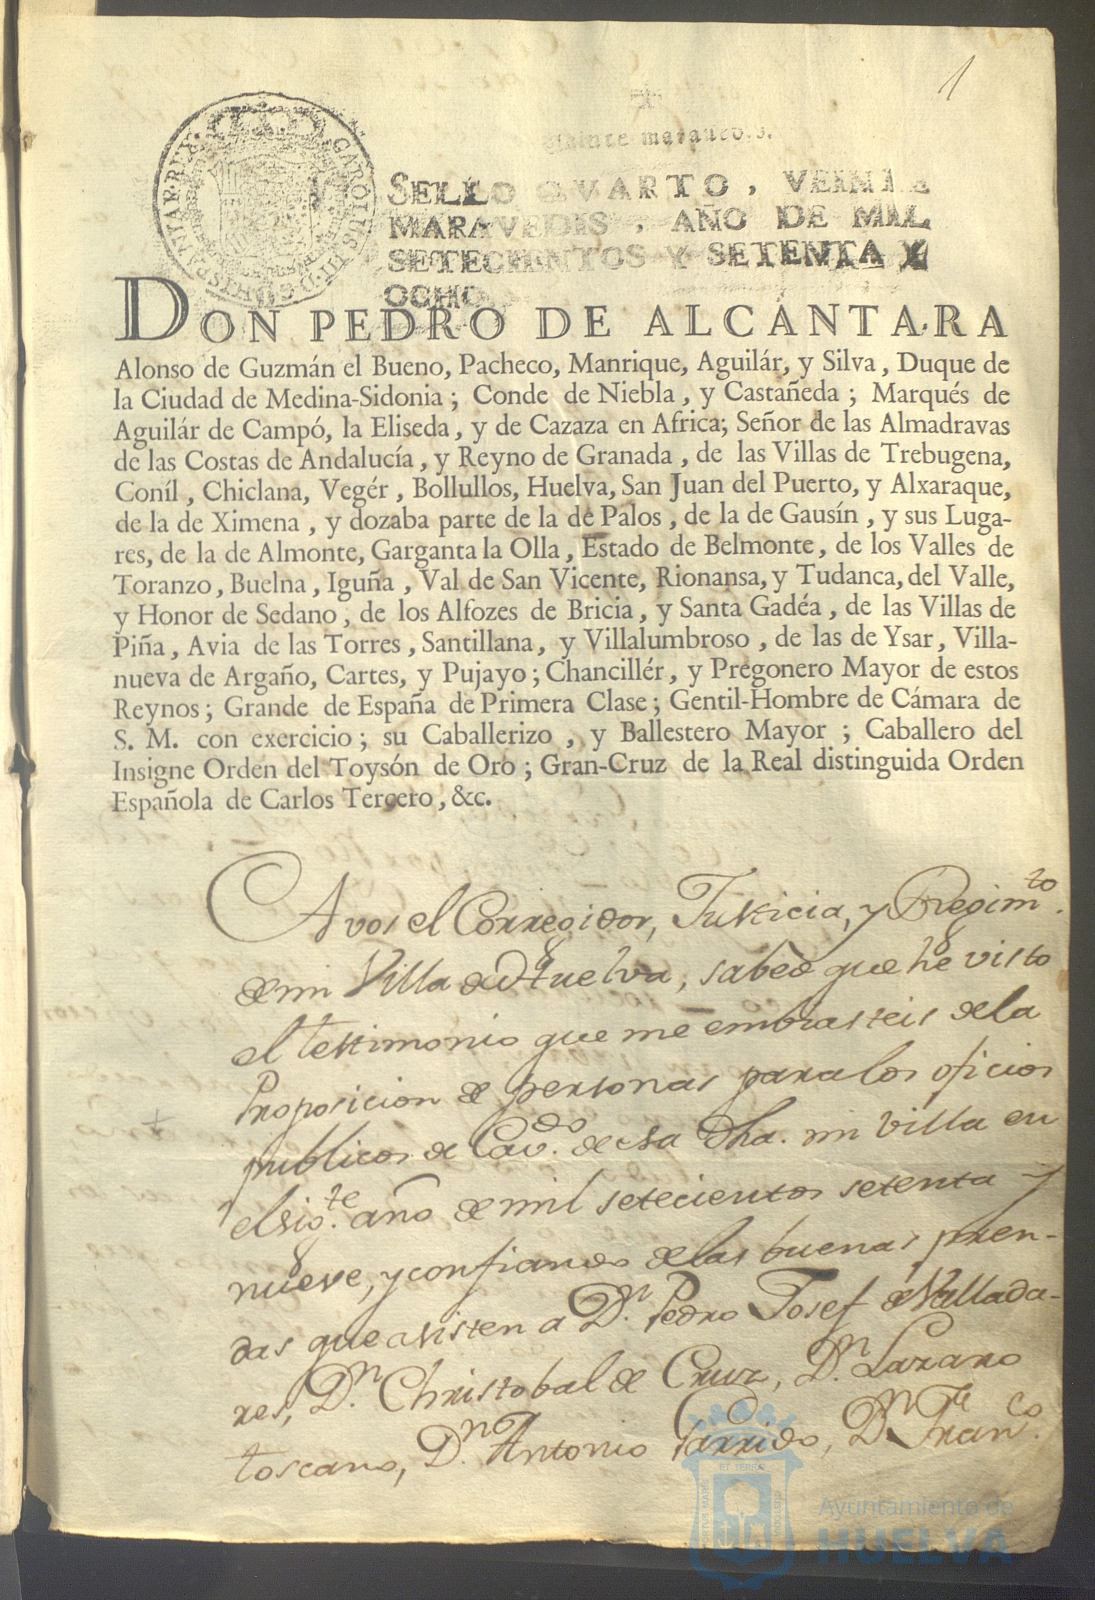 1
CAROLUS III D G HISPANIAR REX
SELLO QVARTO, VEINTE
MARAVEDIS, AÑO DE MIL
SETECIENTOS Y SETENTA Y
OCHO.
DON PEDRO DE ALCÁNTARA
Alonso de Guzmán el Bueno, Pacheco, Manrique, Aguilár, y Silva, Duque de
la Ciudad de Medina-Sidonia; Conde de Niebla, y Castañeda; Marqués de
Aguilár de Campó, la Eliseda, y de Cazaza en Africa; Señor de las Almadravas
de las Costas de Andalucía, y Reyno de Granada, de las Villas de Trebugena,
Coníl, Chiclana, Vegér, Bollullos, Huelva, San Juan del Puerto, y Alxaraque,
de la de Ximena, y dozaba parte de la de Palos, de la de Gausín, y sus Luga-
res, de la de Almonte, Garganta la Olla, Estado de Belmonte, de los Valles de
Toranzo, Buelna, Iguña, Val de San Vicente, Rionansa, y Tudanca, del Valle,
y Honor de Sedano, de los Alfozes de Bricia, y Santa Gadéa, de las Villas de
Piña, Avia de las Torres, Santillana, y Villalumbroso, de las de Ysar, Villa-
nueva de Argaño, Cartes, y Pujayo; Chancillér, y Pregonero Mayor de estos
Reynos; Grande de España de Primera Clase; Gentil-Hombre de Cámara de
S. M. con exercicio; su Caballerizo, y Ballestero Mayor; Caballero del
Insigne Orden del Toysón de Oro; Gran-Cruz de la Real distinguida Orden
Española de Carlos Tercero, &c.
A vos el Corregidor, Justicia, y Regim.to
de mi Villa de Huelva, sabed que he visto
el testimonio que me embiasteis de la
Proposicion de personas para los oficios
publicos de Cav.do de esa dha. mi villa en
el sig.te año de mil setecientos setenta y
nueve, y confiando de las buenas pren-
das que asisten a D.n Pedro Josef de Vallada-
res, D.n Christobal de Cruz, D.n Lazaro
toscano, D.n Antonio Garrido, D.n Fran.co
Ayuntamiento de
HUELVA